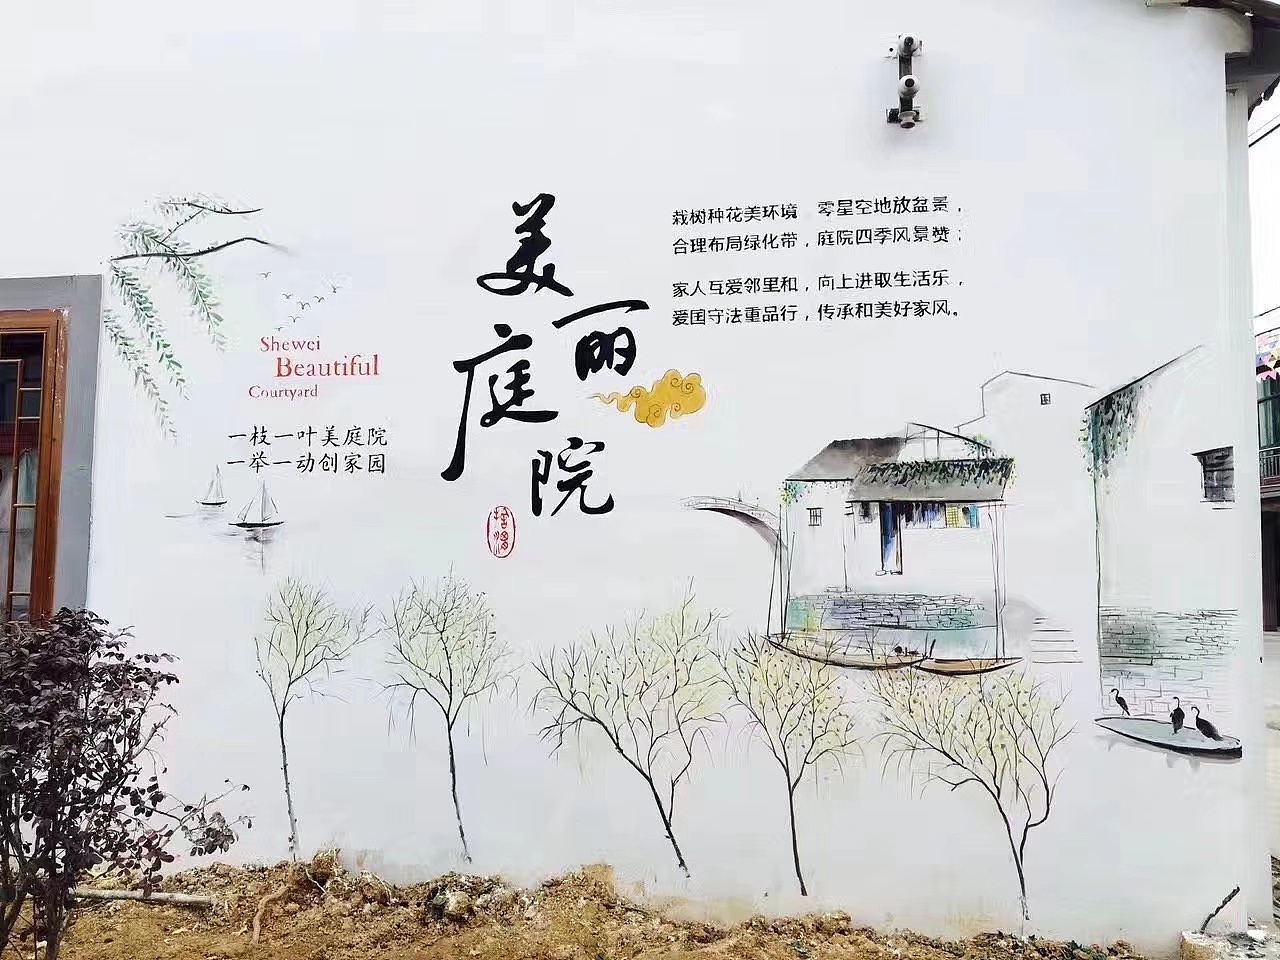 美丽庭院
栽树种花美环境  零星空地放盆景，
合理布局绿化带，庭院四季风景赞；
家人互爱邻里和，向上进取生活乐，
爱国守法重品行，传承和美好家风。
Shewei
Beautiful
Courtyard
一枝一叶美庭院
一举一动创家园